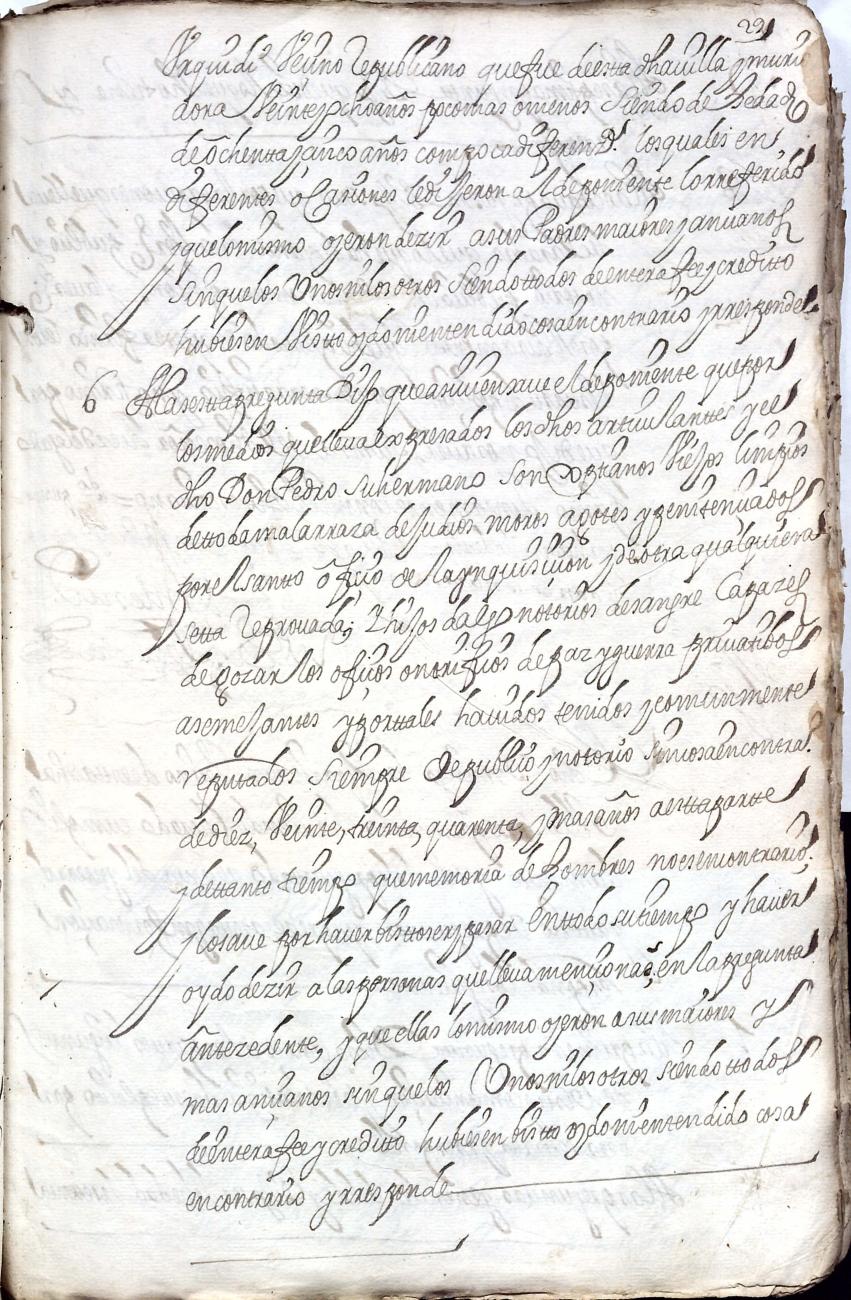 29
Vrquidi Vezino Republicano que fue de esta dha uilla y murio
aora Veinte y ocho años poco mas o menos siendo de hedad
de ochenta y cinco años con poca diferenzª. los quales en
diferentes ocasiones le dijeron al deponiente lo rreferido
y que lo mismo oyeron dezir a sus Padres maiores y anzianos
sin que los Vnos ni los otros siendo ttodos de entera fee y credito
hubiesen Visto oydo ni entendido cosa en contrario y rresponde
6 A la sesta pregunta Dijo que asi mismo saue el deponiente que por
los medios que lleua expresados los dhos articulantes y el
dho Don Pedro su hermano son Xptianos Viejos limpios
de ttoda mala rraza de Judios moros agotes y penitenciados
por el santto oficio de la ynquisicion y de otra qualquiera
setta reprouada; y hijos dalgo notorios de sangre Capazes
de gozar los oficios onorificos de paz y guerra priuatibos
a semejantes y por ttales hauidos tenidos y comunmente
reputados siempre de publico y notorio sin cosa en contra.
de diez, Veinte, treinta, quarenta, y mas años a estta parte
y de ttanto tiempo que memoria de hombres no es en contrario.
y lo saue por hauer bisto ser y pasar en ttodo su tiempo y hauer
oydo dezir a las personas que lleua mencionads. en la pregunta
antezedente, y que ellas lo mismo oyeron a sus maiores y
mas anzianos sin que los Vnos ni los otros siendo ttodos
de entera fee y credito hubiesen bistto oydo ni entendido cosa
en contrario y rresponde